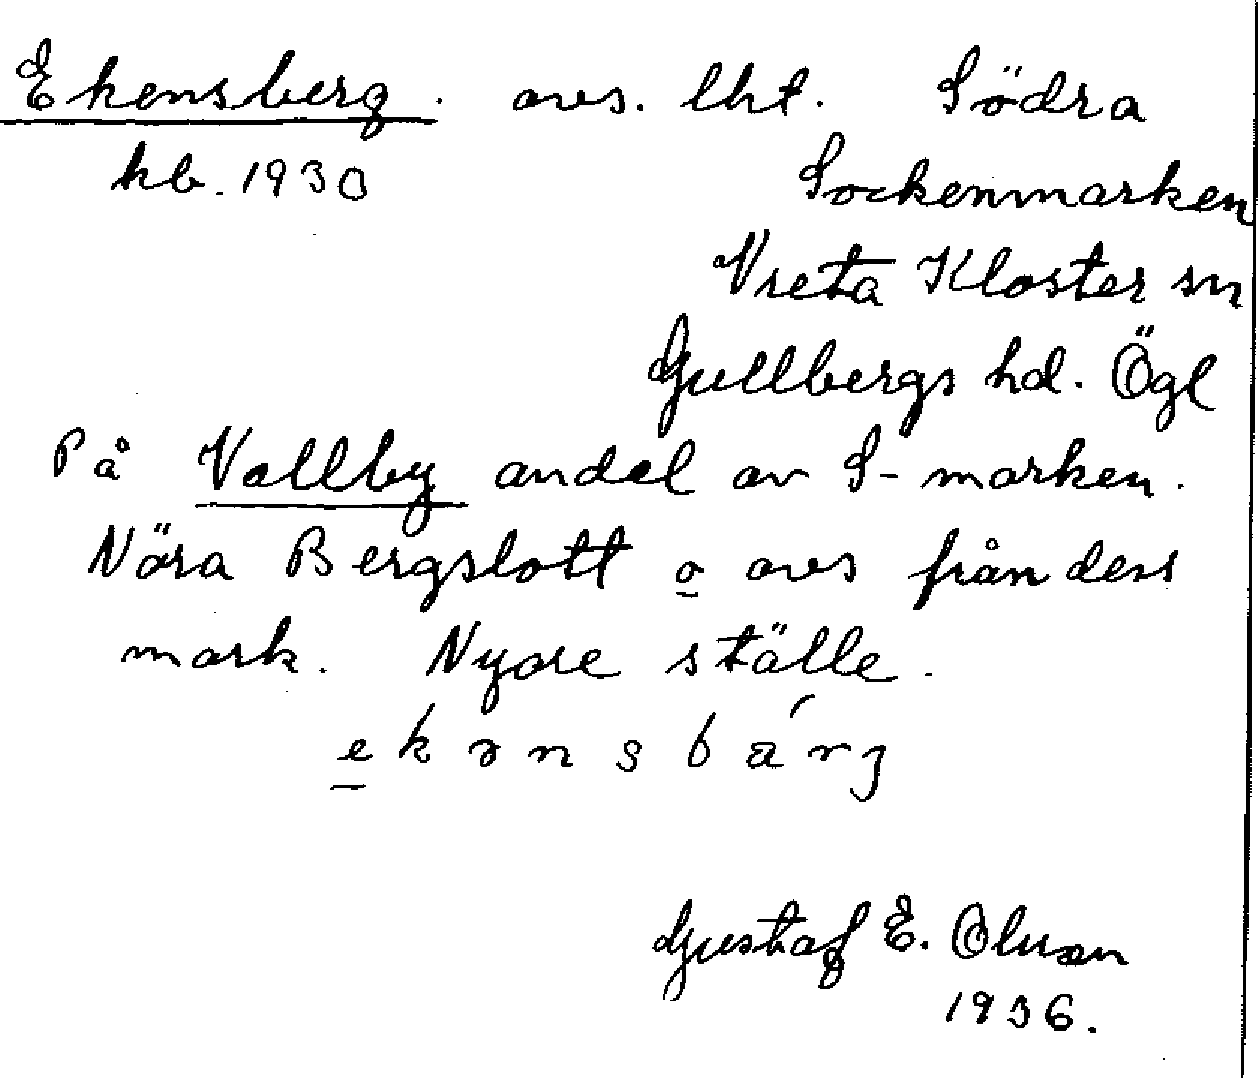 Ekensberg. avs. lht. Södra
kb. 1930 Sockenmarken
Vreta Kloster sn
Gullbergs hd. Ögl
På Vallby andel av S-marken.
Nära Bergslott o avs från dess
mark. Nyare ställe.
ekənsbárj
Gustaf E. Olsson
1936.